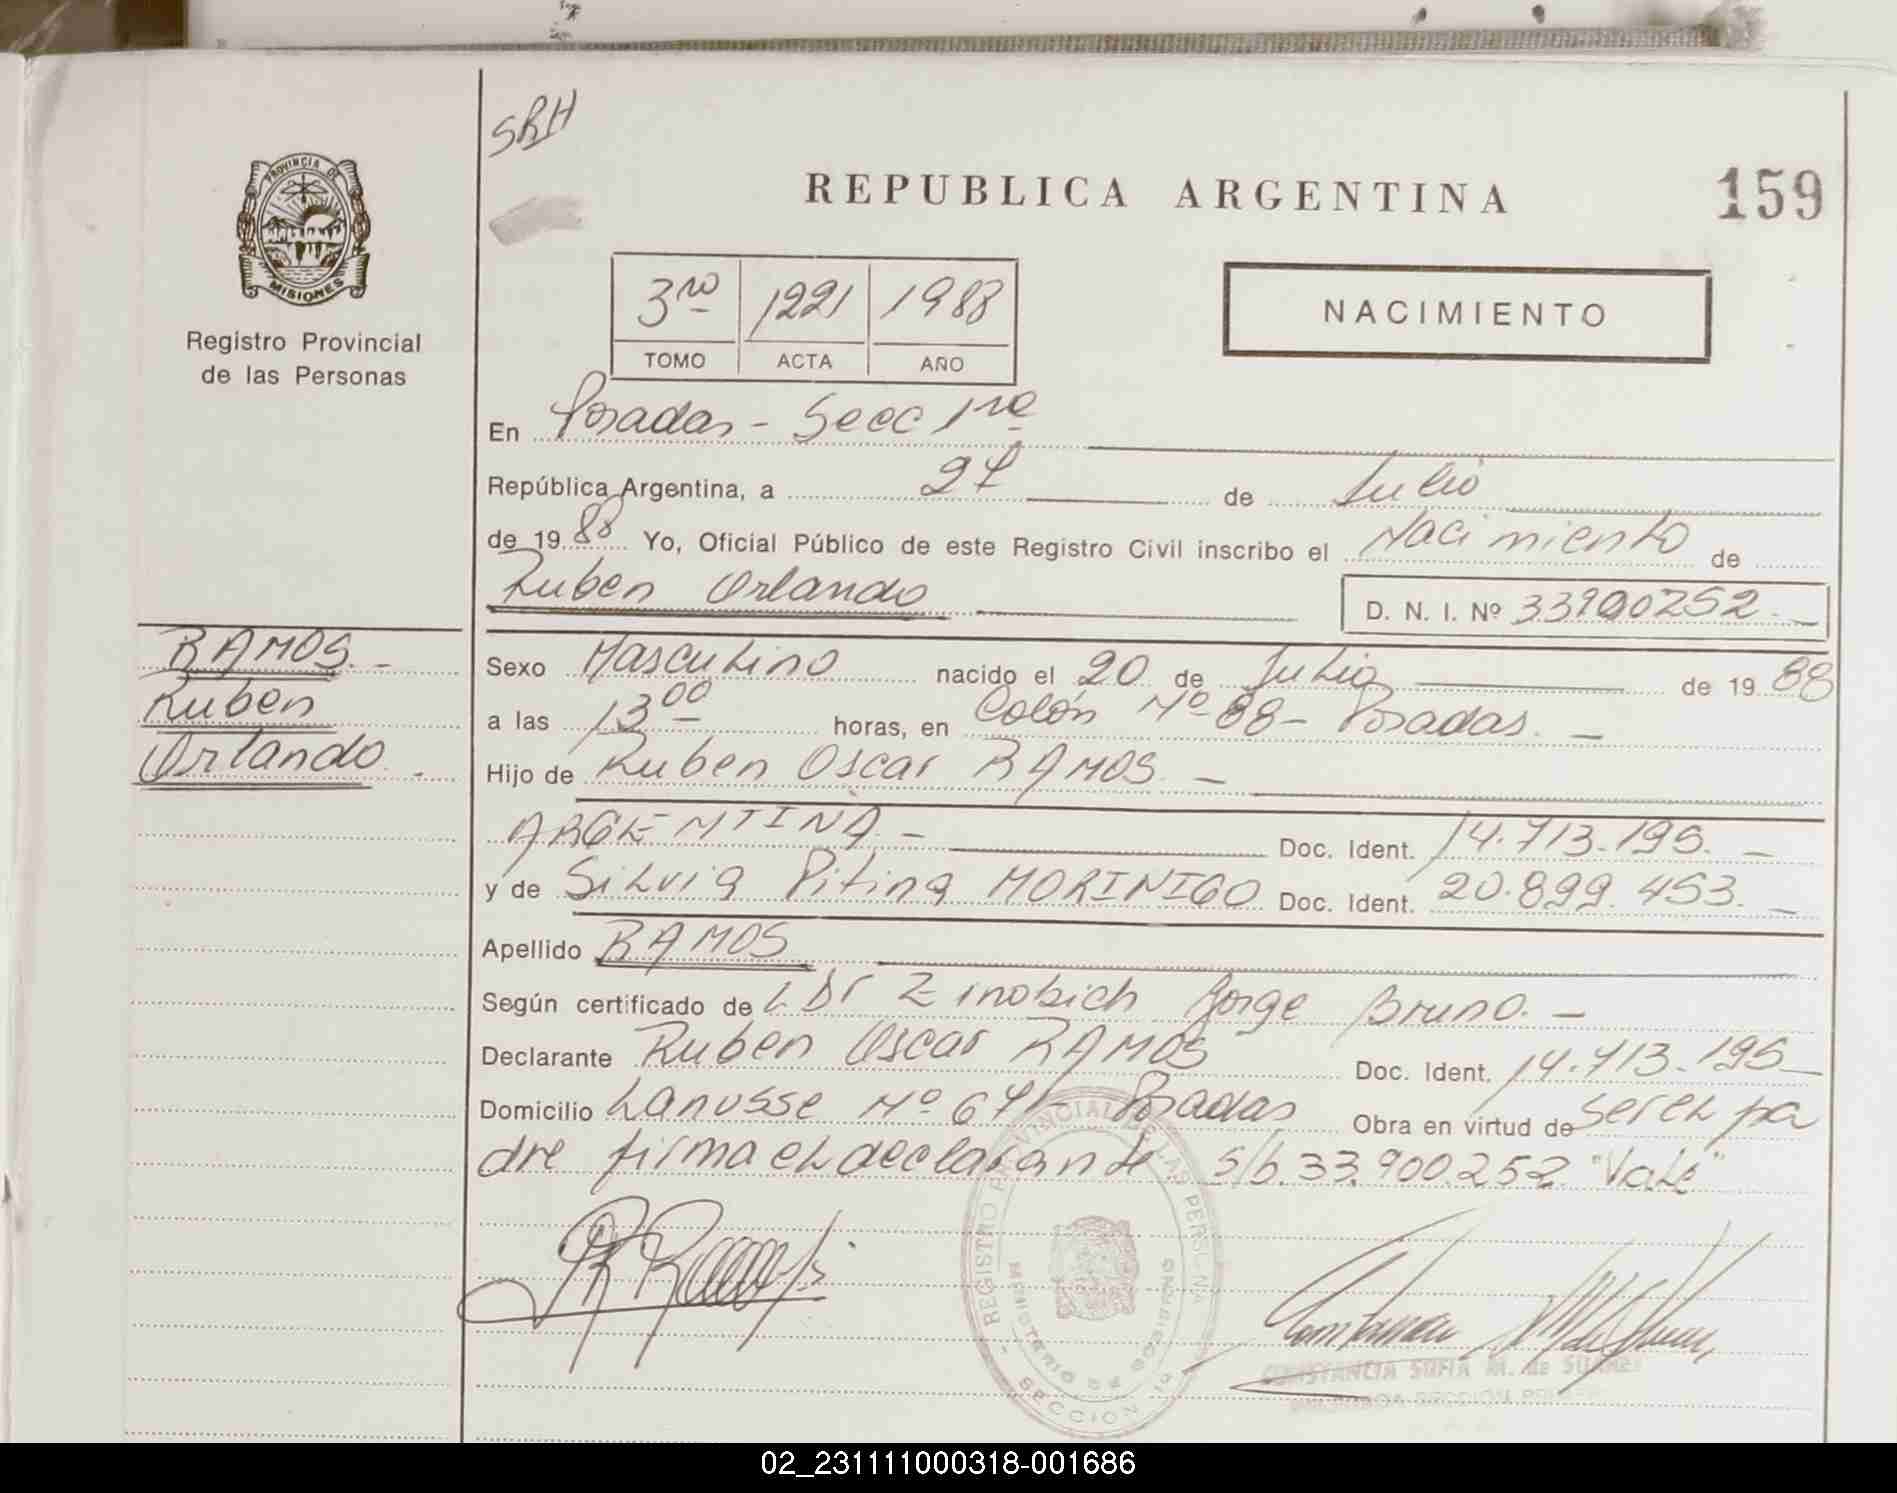 SRH
PROVINCIA DE
MISIONES
Registro Provincial
de las Personas
REPUBLICA ARGENTINA
159
3ro 1221 1988
TOMO ACTA AÑO
NACIMIENTO
En Posadas - Secc 1ra
República Argentina, a 27 de Julio
de 1988 Yo, Oficial Público de este Registro Civil inscribo el Nacimiento de
Ruben Orlando
D. N. I. Nº 33900252.-
RAMOS.-
Ruben
Orlando.
Sexo Masculino nacido el 20 de Julio de 1988
a las 13 00 horas, en Colón Nº 88- Posadas. -
Hijo de Ruben Oscar RAMOS. -
ARGENTINA. - Doc. Ident. 14.713.195. -
y de Silvia Pitina MORINIGO Doc. Ident. 20.899.453. -
Apellido RAMOS
Según certificado de L Dr Zinobich Jorge Bruno. -
Declarante Ruben Oscar RAMOS Doc. Ident. 14.713.195-
Domicilio Lanusse Nº 671 Posadas Obra en virtud de ser el pa
dre firma el declarante s/b.33.900.252 "Vale"
REGISTRO PROVINCIAL DE LAS PERSONAS
MINISTERIO DE GOBIERNO
SECCION 1a
CONSTANCIA SOFIA M. de SUAREZ
02_231111000318-001686